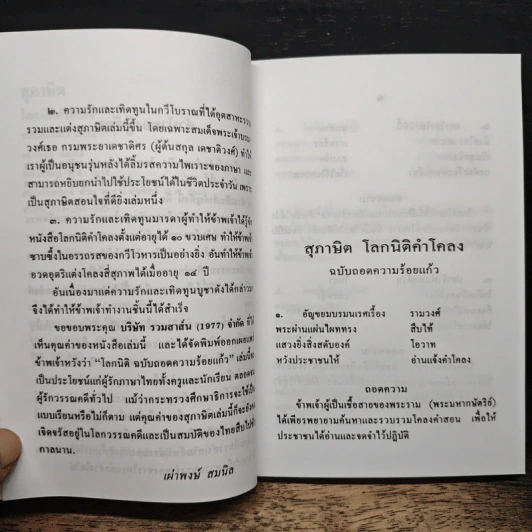 ๒. ความรักและเทิดทูนในกวีโบราณที่ได้อุตสาหะรวบ
รวมและแต่งสุภาษิตเล่มนี้ขึ้น โดยเฉพาะสมเด็จพระเจ้าบรม
วงศ์เธอ กรมพระยาเดชาดิศร (ผู้ต้นสกุล เดชาติวงศ์) ทำให้
เราผู้เป็นอนุชนรุ่นหลังได้ลิ้มรสความไพเราะของภาษา และ
สามารถหยิบยกนำไปใช้ประโยชน์ได้ในชีวิตประจำวัน เพราะ
เป็นสุภาษิตสอนใจที่ดียิ่งเล่มหนึ่ง
๓. ความรักและเทิดทูนมารดาผู้ทำให้ข้าพเจ้าได้รู้จัก
หนังสือโลกนิติคำโคลงตั้งแต่อายุได้ ๑๐ ขวบเศษ ทำให้ข้าพเจ้า
ซาบซึ้งในอรรถรสของกวีโวหารเป็นอย่างยิ่ง อันทำให้ข้าพเจ้า
อวดอุตริแต่งโคลงสี่สุภาพได้เมื่ออายุ ๑๔ ปี
อันเนื่องมาแต่ความรักและเทิดทูนบูชาดังได้กล่าวมา
จึงได้ทำให้ข้าพเจ้าทำงานชิ้นนี้ได้สำเร็จ
ขอขอบพระคุณ บริษัท รวมสาส์น (1977) จำกัด ที่ได้
เห็นคุณค่าของหนังสือเล่มนี้ และได้จัดพิมพ์ออกเผยแพร่
ข้าพเจ้าหวังว่า "โลกนิติ ฉบับถอดความร้อยแก้ว" เล่มนี้จะ
เป็นประโยชน์แก่ผู้รักภาษาไทยทั้งครูและนักเรียน ตลอดจน
ผู้รักวรรณคดีทั่วไป แม้ว่ากระทรวงศึกษาธิการจะใช้เป็น
แบบเรียนหรือไม่ก็ตาม แต่คุณค่าของสุภาษิตเล่มนี้ก็จะยังคง
เจิดจรัสอยู่ในโลกวรรณคดีและเป็นสมบัติของไทยสืบไปชั่ว
กาลนาน.
เผ่าพงษ์ สมนิล
สุภาษิต โลกนิติคำโคลง
ฉบับถอดความร้อยแก้ว
๑. อัญขยมบรมนเรศเรื้อง รามวงศ์
พระผ่านแผ่นไผททรง สืบไท้
แสวงยิ่งสิ่งสดับองค์ โอวาท
หวังประชาชนให้ อ่านแจ้งคำโคลง
ถอดความ
ข้าพเจ้าผู้เป็นเชื้อสายของพระราม (พระมหากษัตริย์)
ได้เพียรพยายามค้นหาและรวบรวมโคลงคำสอน เพื่อให้
ประชาชนได้อ่านและจดจำไว้ปฏิบัติ